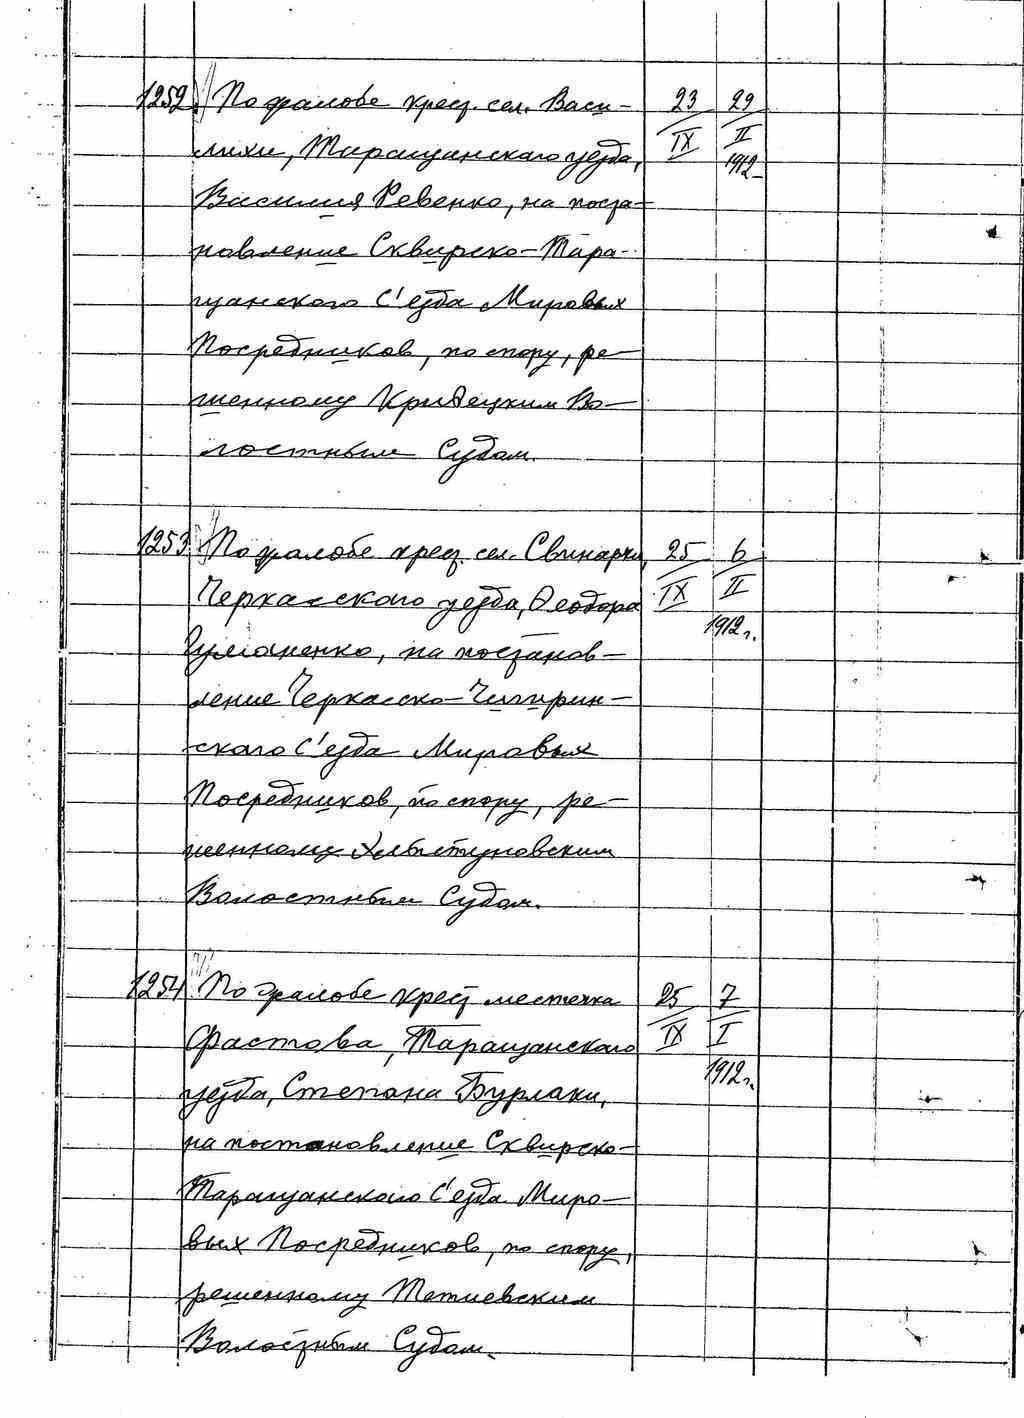 1252. По жалобе крест. сел. Васи- 23 29
лихи, Таращанского уезда, IX II
Василия Ревенко, на поста- 1912
новление Сквирско-Тара-
щанского С'езда Мировых
Посредников, по спору, ре-
шенному Кривецким Во-
лостным Судом.
1253. По жалобе крест. сел. Свинарки, 25 6
Черкасского уезда, Феодора IX II
Гуманенко, на постанов- 1912 г.
ление Черкасско-Чигирин-
ского С'езда Мировых
Посредников, по спору, ре-
шенному Хлыстуновским
Волостным Судом.
1254 По жалобе крест местечка 25 7
Фастова, Таращанского IX I
уезда, Степана Бурлаки, 1912 г.
на постановление Сквирско-
Таращанского С'езда Миро-
вых Посредников, по спору,
решенному Тетиевским
Волостным Судом.